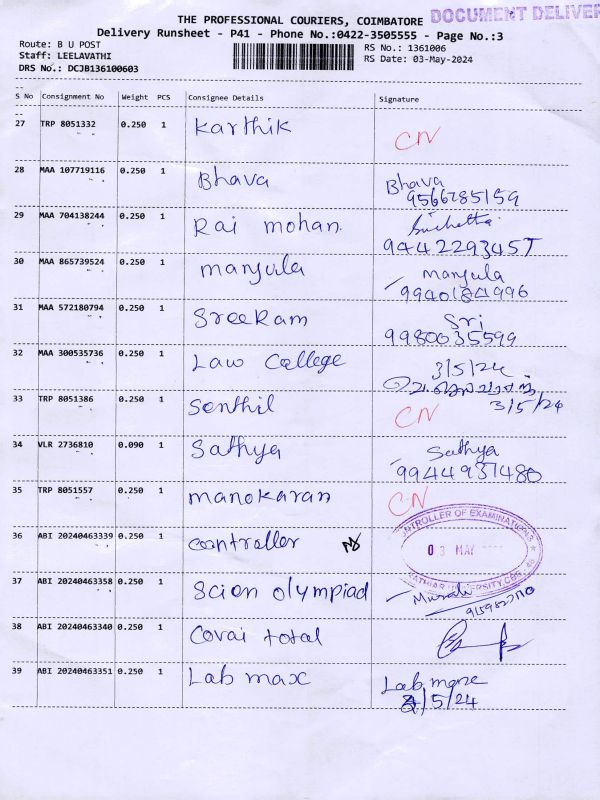 THE PROFESSIONAL COURIERS, COIMBATORE
DOCUMENT DELIVER
Delivery Runsheet - P41 - Phone No.:0422-3505555 - Page No.:3
Route: B U POST
RS No.: 1361006
Staff: LEELAVATHI
RS Date: 03-May-2024
DRS No.: DCJB136100603
S No Consignment No Weight PCS Consignee Details Signature
27 TRP 8051332 0.250 1 Karthik CN
28 MAA 107719116 0.250 1 Bhava Bhava
9566785159
29 MAA 704138244 0.250 1 Rai mohan.
9444229345T
30 MAA 865739524 0.250 1 manjula Manjula
31 MAA 572180794 0.250 1 SreeRam Sri
9980035599
32 MAA 300535736 0.250 1 Law College 3/5/24
33 TRP 8051386 0.250 1 Senthil CN 3/5/24
34 VLR 2736810 0.090 1 Sathya Sathya
9944937480
35 TRP 8051557 0.250 1 manokaran CN
36 ABI 20240463339 0.250 1 controller
CONTROLLER OF EXAMINATIONS
03 MAY
37 ABI 20240463358 0.250 1 Scion olympiad Murali
38 ABI 20240463340 0.250 1 Covai total
39 ABI 20240463351 0.250 1 Lab max Lab more
/5/24